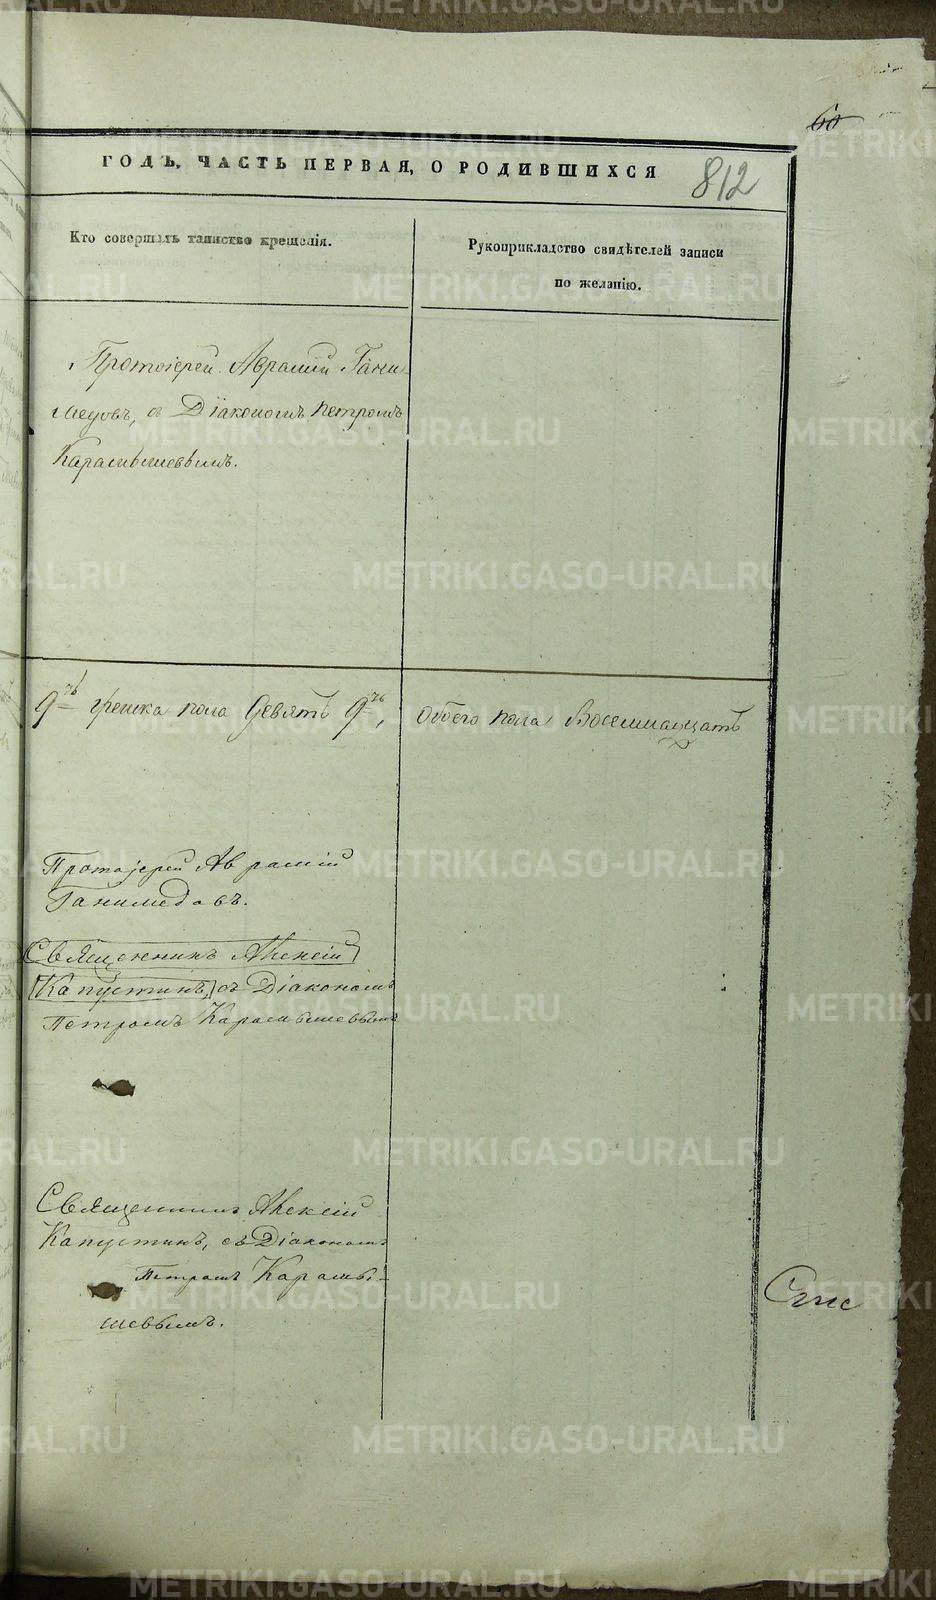 60
ГОДЪ, ЧАСТЬ ПЕРВАЯ, О РОДИВШИХСЯ
812
Кто совершалъ таинство крещенія.
Рукоприкладство свидѣтелей записи
по желанію.
Протоіерей Аврамій Гани
медовъ, съ Діакономъ Петромъ
Карамышевымъ.
9ть женска пола Девять 9ть,
обоего пола Восемнадцать
Протоіерей Аврамій
Ганимедовъ.
Священникъ Алексій
Капустинъ, съ Діакономъ
Петромъ Карамышевымъ
Священникъ Алексій
Капустинъ, съ Діакономъ
Петромъ Карамы-
шевымъ.
METRIKI.GASO-URAL.RU